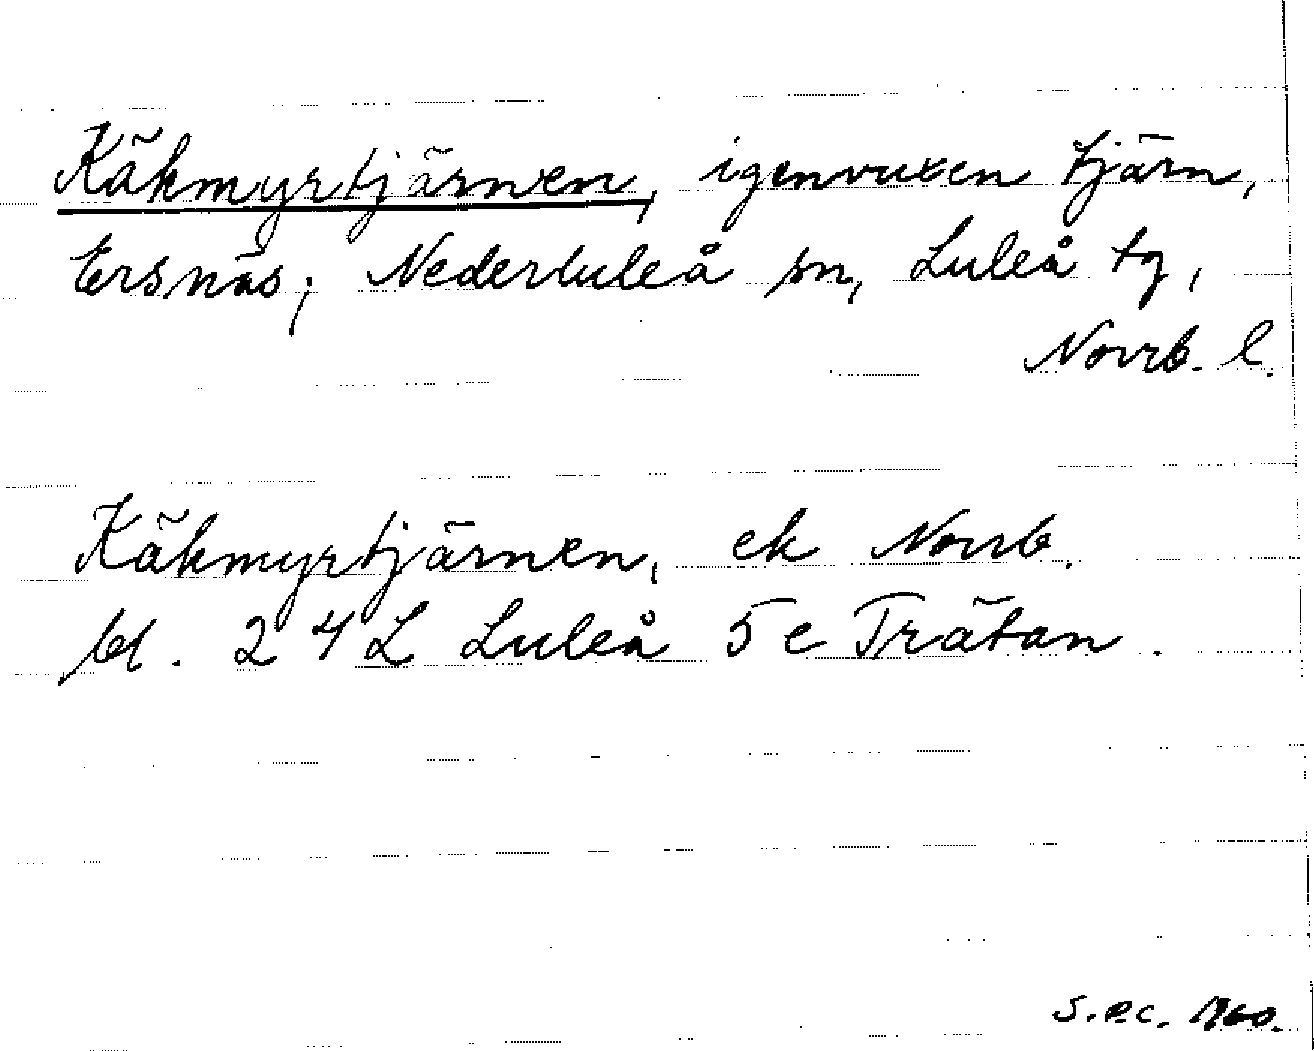 Käkmyrtjärnen, igenvuxen tjärn,
Ersnäs, Nederluleå sn, Luleå tg,
Norrb. l.
Käkmyrtjärnen, ek Norrb.
bl. 24 L Luleå 5c Trätan.
S.P.C. 1960.